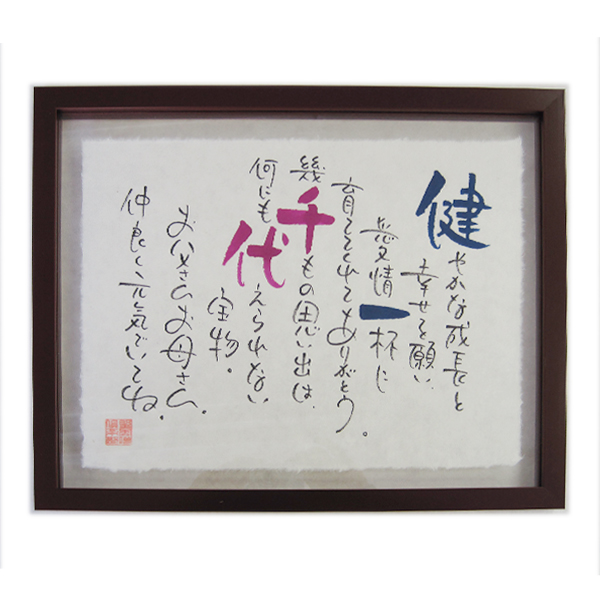 健やかな成長と
幸せを願い、
愛情一杯に
育ててくれてありがとう。
幾千もの思い出は、
何にも代えられない
宝物。
お父さんお母さん、
仲良く元気でいてね。